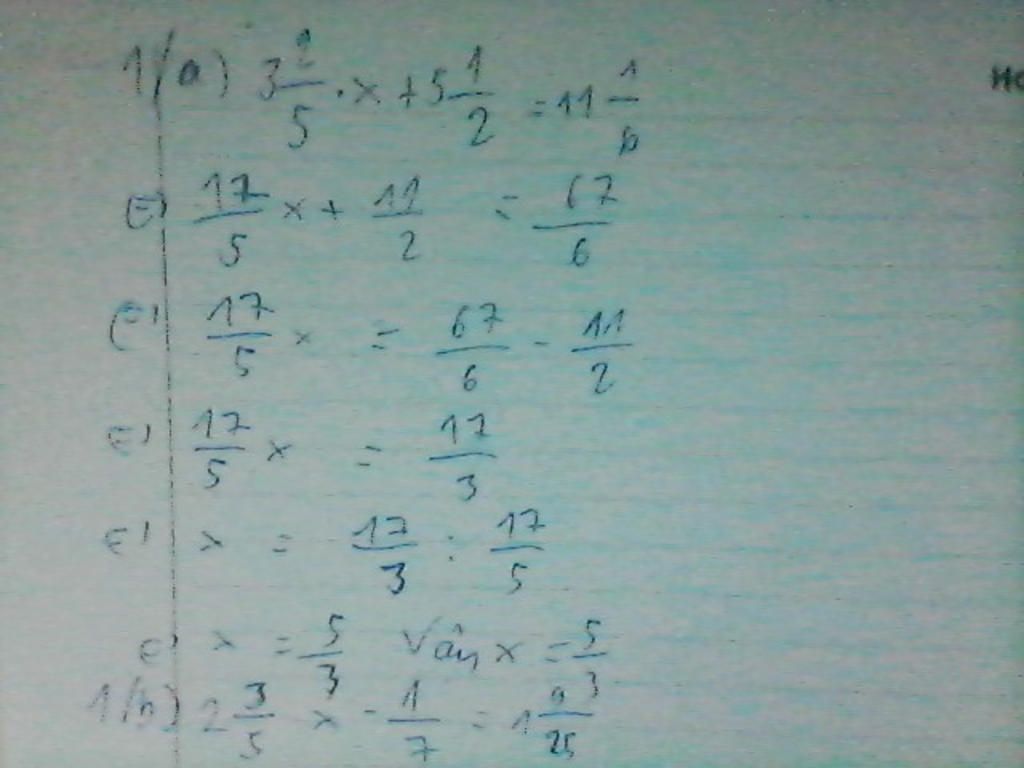 1/a) 3 2/5 . x + 5 1/2 = 11 1/6
(=) 17/5 x + 11/2 = 67/6
(=) 17/5 x = 67/6 - 11/2
(=) 17/5 x = 17/3
(=) x = 17/3 : 17/5
(=) x = 5/3 Vậy x = 5/3
2 3/5 x - 1/7 = 1 9/25